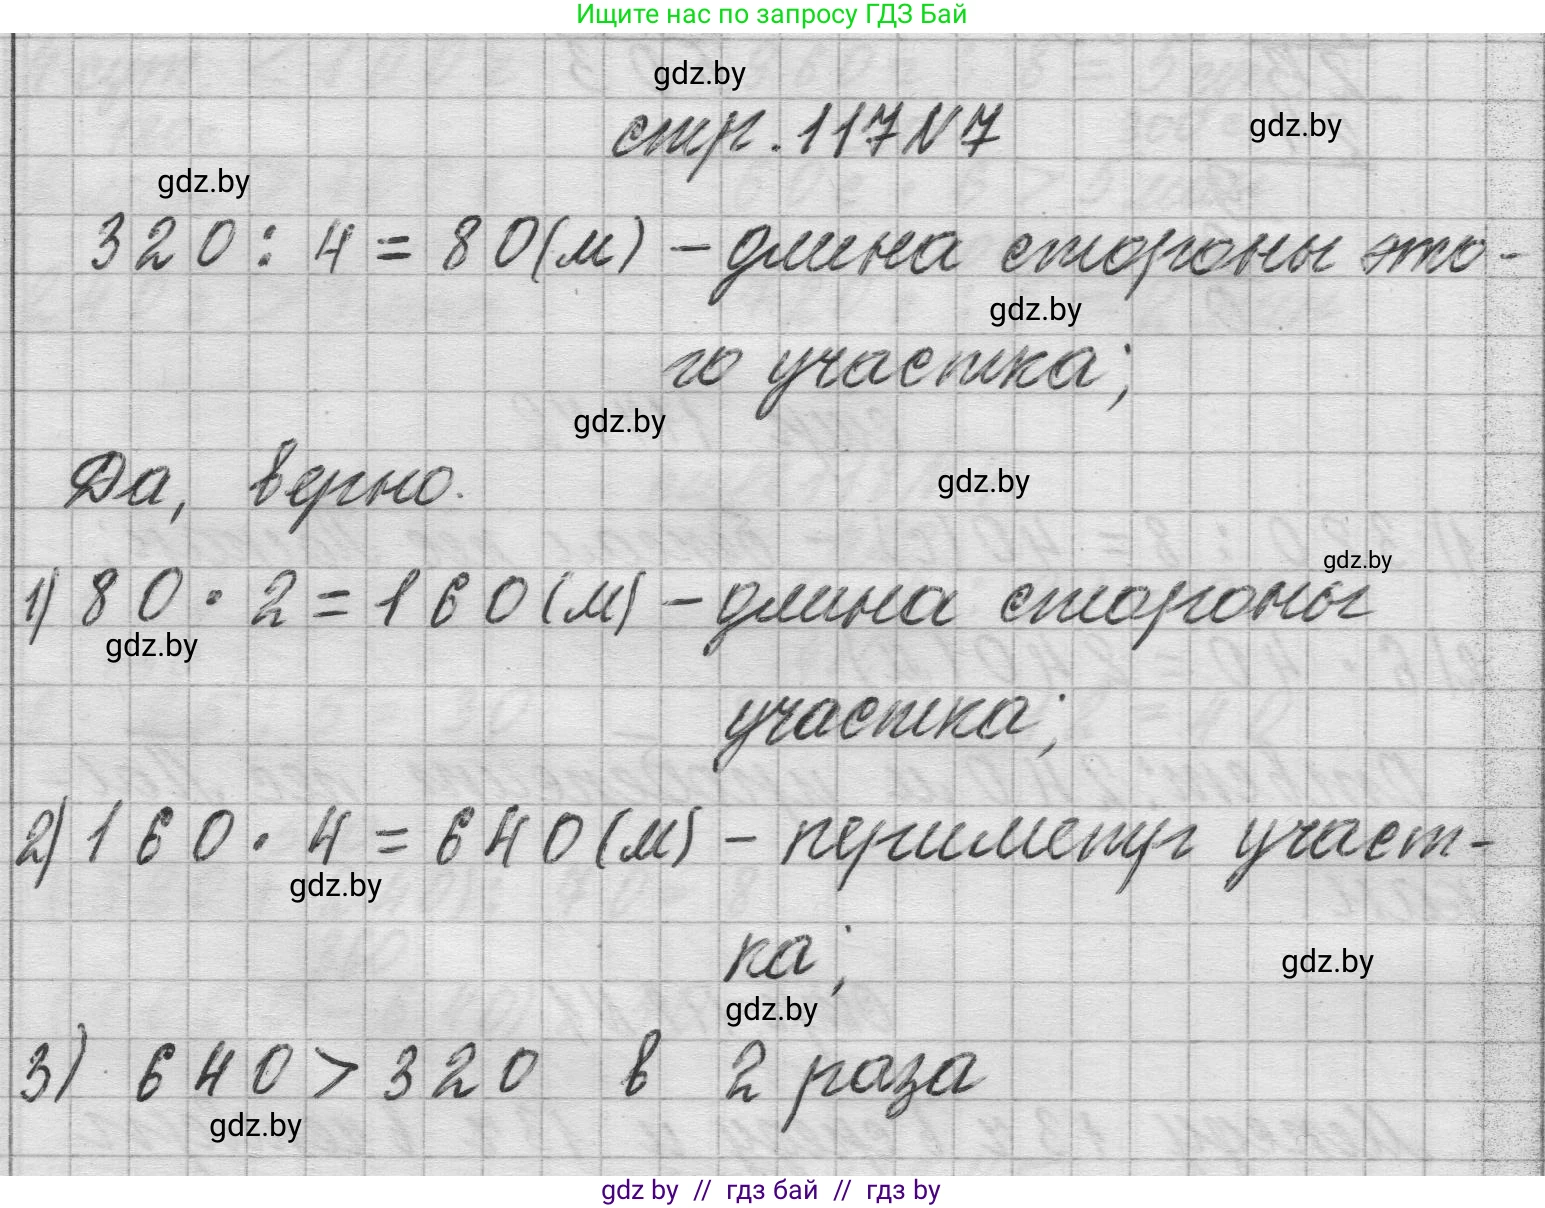 Ищите нас по запросу ГДЗ Бай
gdz.by
стр. 117 N 7
gdz.by
gdz.by
320 : 4 = 80 (м) – длина стороны это-
gdz.by
го участка;
gdz.by
Да, верно.
gdz.by
gdz.by
1) 80 · 2 = 160 (м) – длина стороны
gdz.by
участка;
2) 160 · 4 = 640 (м) – периметр участ-
gdz.by
ка;
gdz.by
gdz.by
3) 640 > 320 в 2 раза
gdz.by
gdz by // гдз бай // гдз by